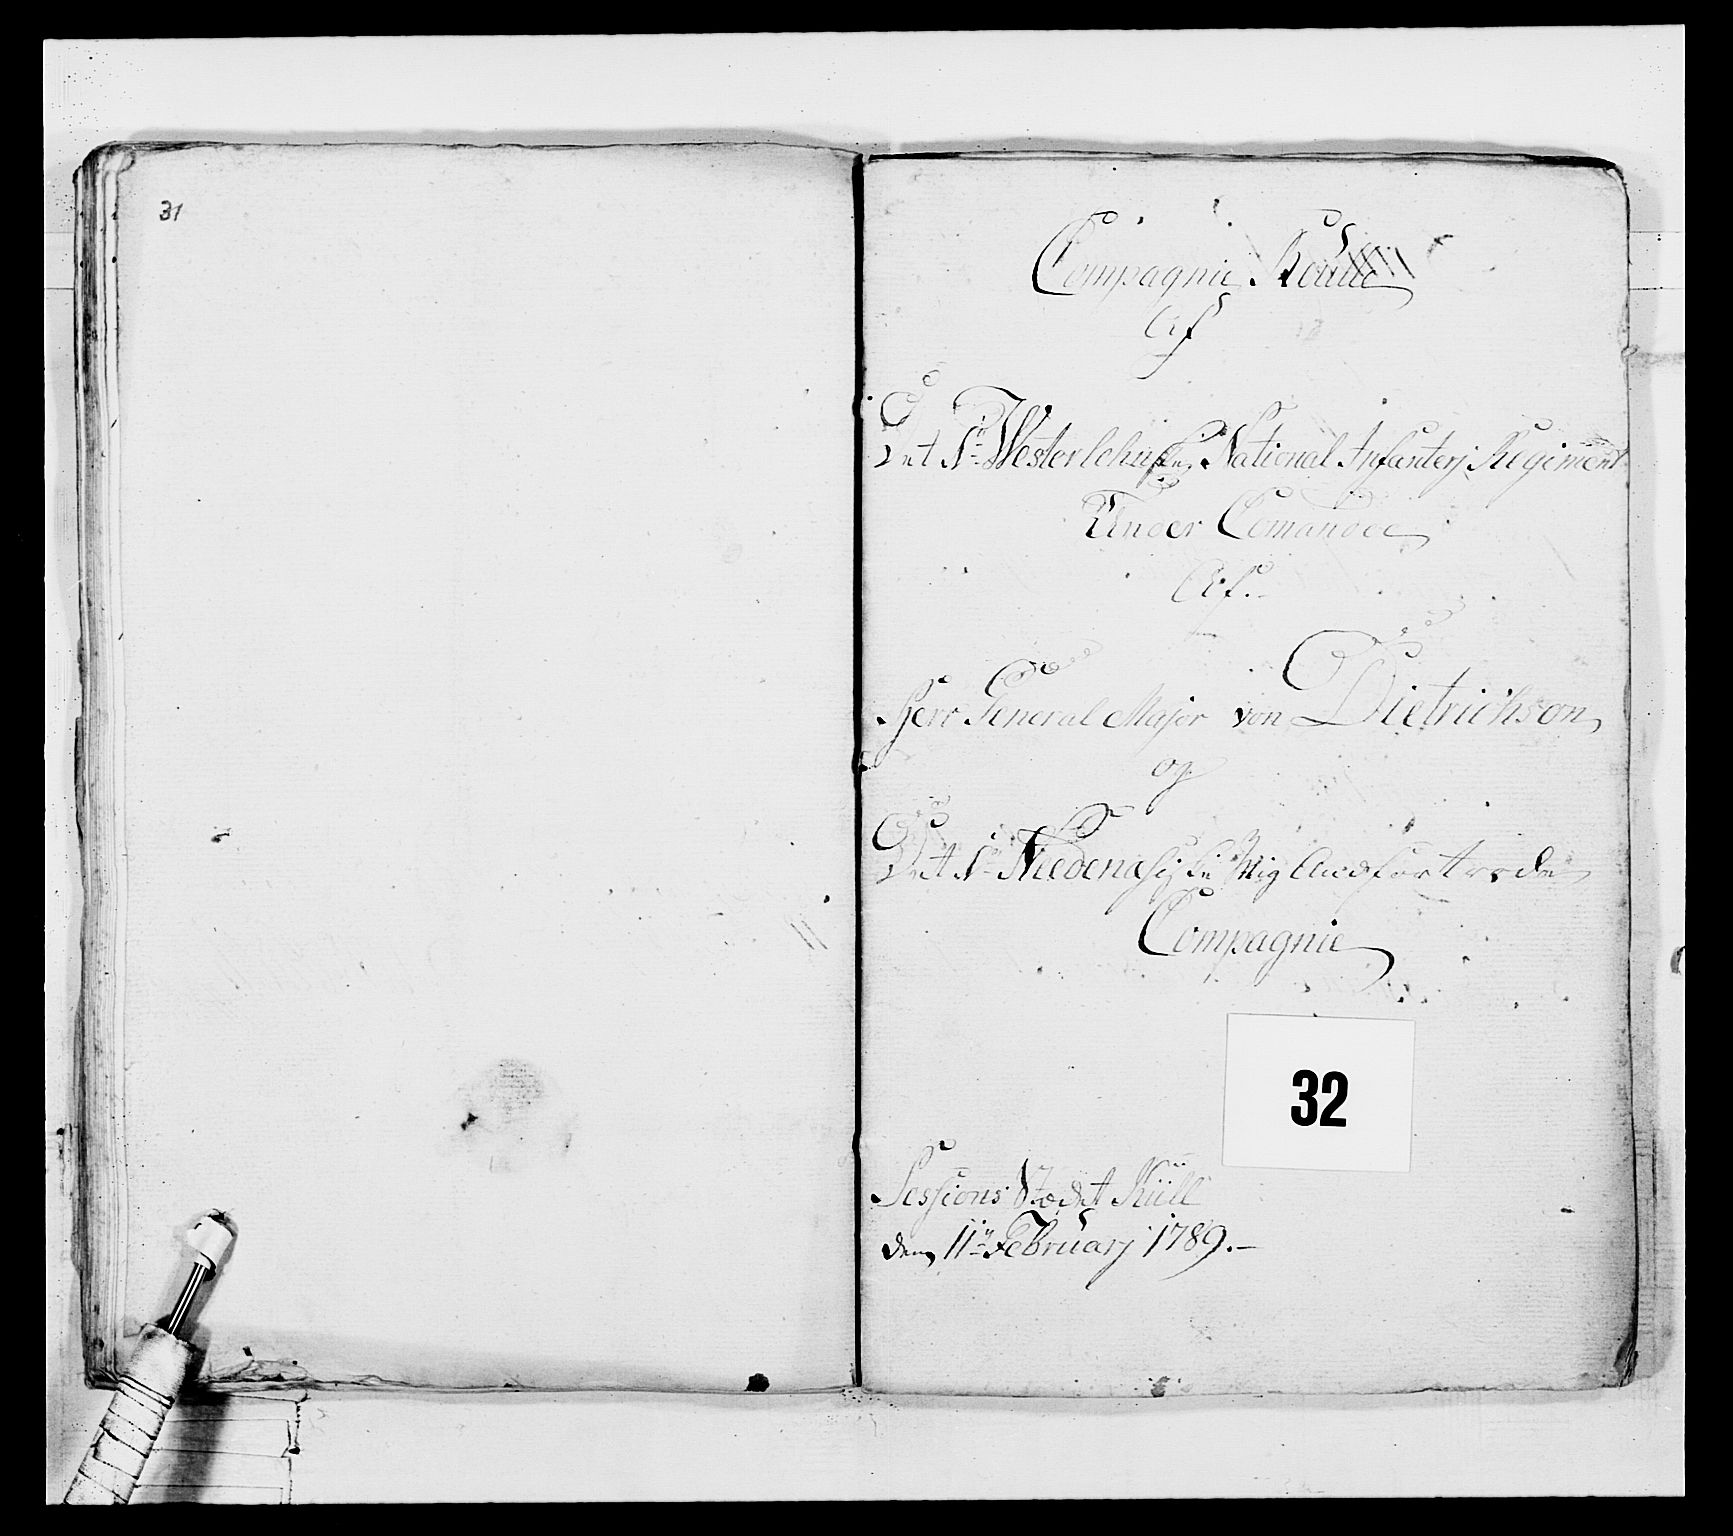 31
Compagnie Roulle
Af
Det 1te Westerlehnske National Infanterj Regiment
Under Comandoe
Af.
Herr General Major von Dietrichson
og
Det 1te Nedenesiske mig Anfortrode
Compagnie
32
Sessions Stædet Hüll
den 11te Februarj 1789.